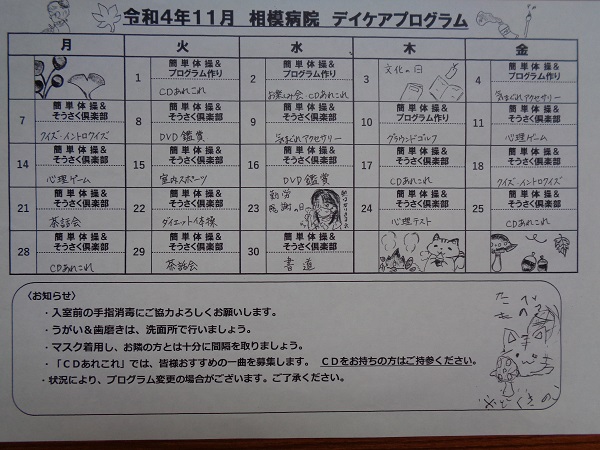 令和4年11月 相模病院 デイケアプログラム
月 火 水 木 金
1 簡単体操&プログラム作り
CDあれこれ
2 簡単体操&プログラム作り
お楽しみ会・CDあれこれ
3 文化の日
4 簡単体操&プログラム作り
気まぐれアクセサリー
7 簡単体操&そうさく倶楽部
クイズ・イントロクイズ
8 簡単体操&そうさく倶楽部
DVD鑑賞
9 簡単体操&そうさく倶楽部
気まぐれアクセサリー
10 簡単体操&プログラム作り
グラウンドゴルフ
11 簡単体操&そうさく倶楽部
心理ゲーム
14 簡単体操&そうさく倶楽部
心理ゲーム
15 簡単体操&そうさく倶楽部
室内スポーツ
16 簡単体操&そうさく倶楽部
DVD鑑賞
17 簡単体操&そうさく倶楽部
CDあれこれ
18 簡単体操&そうさく倶楽部
クイズ・イントロクイズ
21 簡単体操&そうさく倶楽部
茶話会
22 簡単体操&そうさく倶楽部
ダイエット体操
23 勤労感謝の日
24 簡単体操&そうさく倶楽部
心理テスト
25 簡単体操&そうさく倶楽部
CDあれこれ
28 簡単体操&そうさく倶楽部
CDあれこれ
29 簡単体操&そうさく倶楽部
茶話会
30 簡単体操&そうさく倶楽部
書道
〈お知らせ〉
・入室前の手指消毒にご協力よろしくお願いします。
・うがい&歯磨きは、洗面所で行いましょう。
・マスク着用し、お隣の方とは十分に間隔を取りましょう。
・「CDあれこれ」では、皆様おすすめの一曲を募集します。 CDをお持ちの方はご持参ください。
・状況により、プログラム変更の場合がございます。ご了承ください。
※どくきのこ